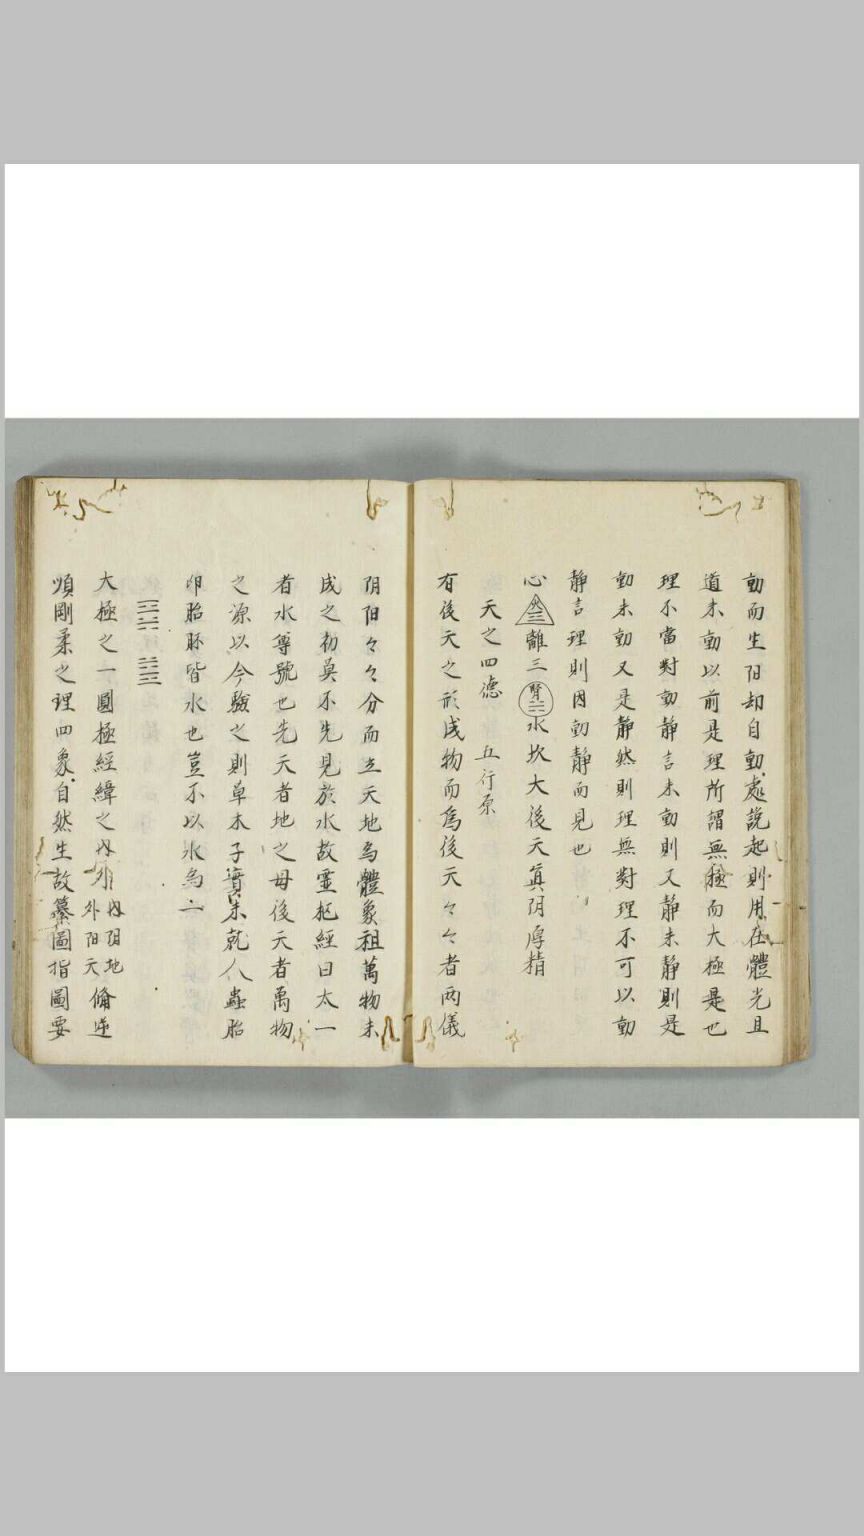 動而生阳却自動處説起則用在體光且
道未動以前是理所謂無極而大極是也
理不當對動静言未動則又静未静則是
動未動又是静然則理無對理不可以動
静言理則因動静而見也
心火三離三腎水坎大後天眞阴厚精
天之四德 五行原
有後天之形成物而爲後天々々者两儀
阴阳々々分而立天地爲體象祖萬物未
成之初莫不先見於水故靈柩經曰太一
者水尊號也先天者地之母後天者萬物
之源以今驗之則草木子實未就人蟲胎
卵胎胚皆水也豈不以水爲一
大極之一圓極經緯之内外内阴地外阳天脩逆
順剛柔之理四象自然生故纂圖指圖要